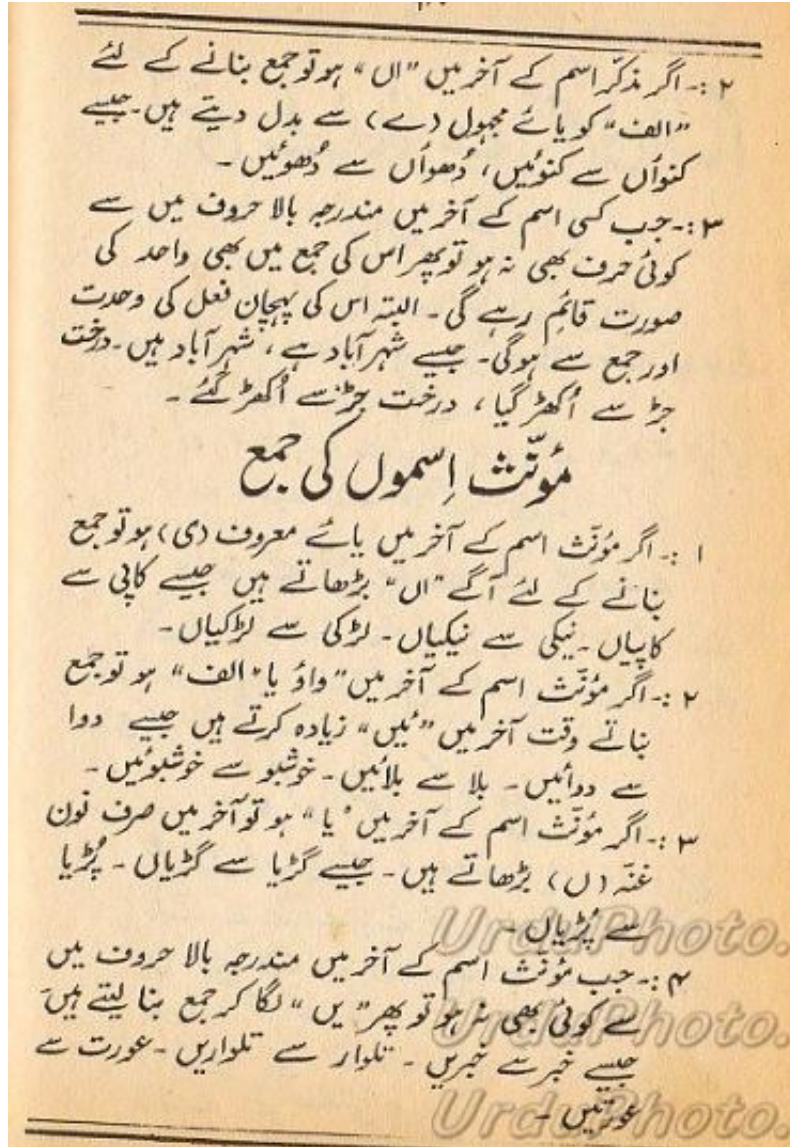 ۲ :۔ اگر مذکّر اسم کے آخر میں "اں" ہو تو جمع بنانے کے لئے
"الف" کو یائے مجہول (ے) سے بدل دیتے ہیں۔ جیسے
کنواں سے کنوئیں، دُھواں سے دُھوئیں۔
۳ :۔ جب کسی اسم کے آخر میں مندرجہ بالا حروف میں سے
کوئی حرف بھی نہ ہو تو پھر اس کی جمع میں بھی واحد کی
صورت قائم رہے گی۔ البتہ اس کی پہچان فعل کی وحدت
اور جمع سے ہوگی۔ جیسے شہر آباد ہے، شہر آباد ہیں۔ درخت
جڑ سے اُکھڑ گیا، درخت جڑ سے اُکھڑ گئے۔
مؤنّث اِسموں کی جمع
۱ :۔ اگر مؤنّث اسم کے آخر میں یائے معروف (ی) ہو تو جمع
بنانے کے لئے آگے "اں" بڑھاتے ہیں جیسے کاپی سے
کاپیاں۔ نیکی سے نیکیاں۔ لڑکی سے لڑکیاں۔
۲ :۔ اگر مؤنّث اسم کے آخر میں "واؤ یا "الف" ہو تو جمع
بناتے وقت آخر میں "ئیں" زیادہ کرتے ہیں جیسے دوا
سے دوائیں۔ بلا سے بلائیں۔ خوشبو سے خوشبوئیں۔
۳ :۔ اگر مؤنّث اسم کے آخر میں "یا" ہو تو آخر میں صرف نون
غنّہ (ں) بڑھاتے ہیں۔ جیسے گڑیا سے گڑیاں۔ پُڑیا
سے پُڑیاں۔
۴ :۔ جب مؤنّث اسم کے آخر میں مندرجہ بالا حروف میں
سے کوئی بھی نہ ہو تو پھر "یں" لگا کر جمع بنا لیتے ہیں
جیسے خبر سے خبریں۔ تلوار سے تلواریں۔ عورت سے
عورتیں۔
UrduPhoto.
UrduPhoto.
UrduPhoto.